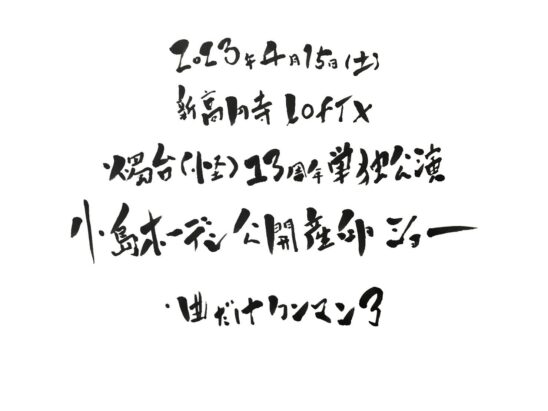 2023年4月15日(土)
新高円寺LOFTX
燭台(怪)13周年単独公演
小島ホーデン公開産卵ショー
・曲だけワンマン3